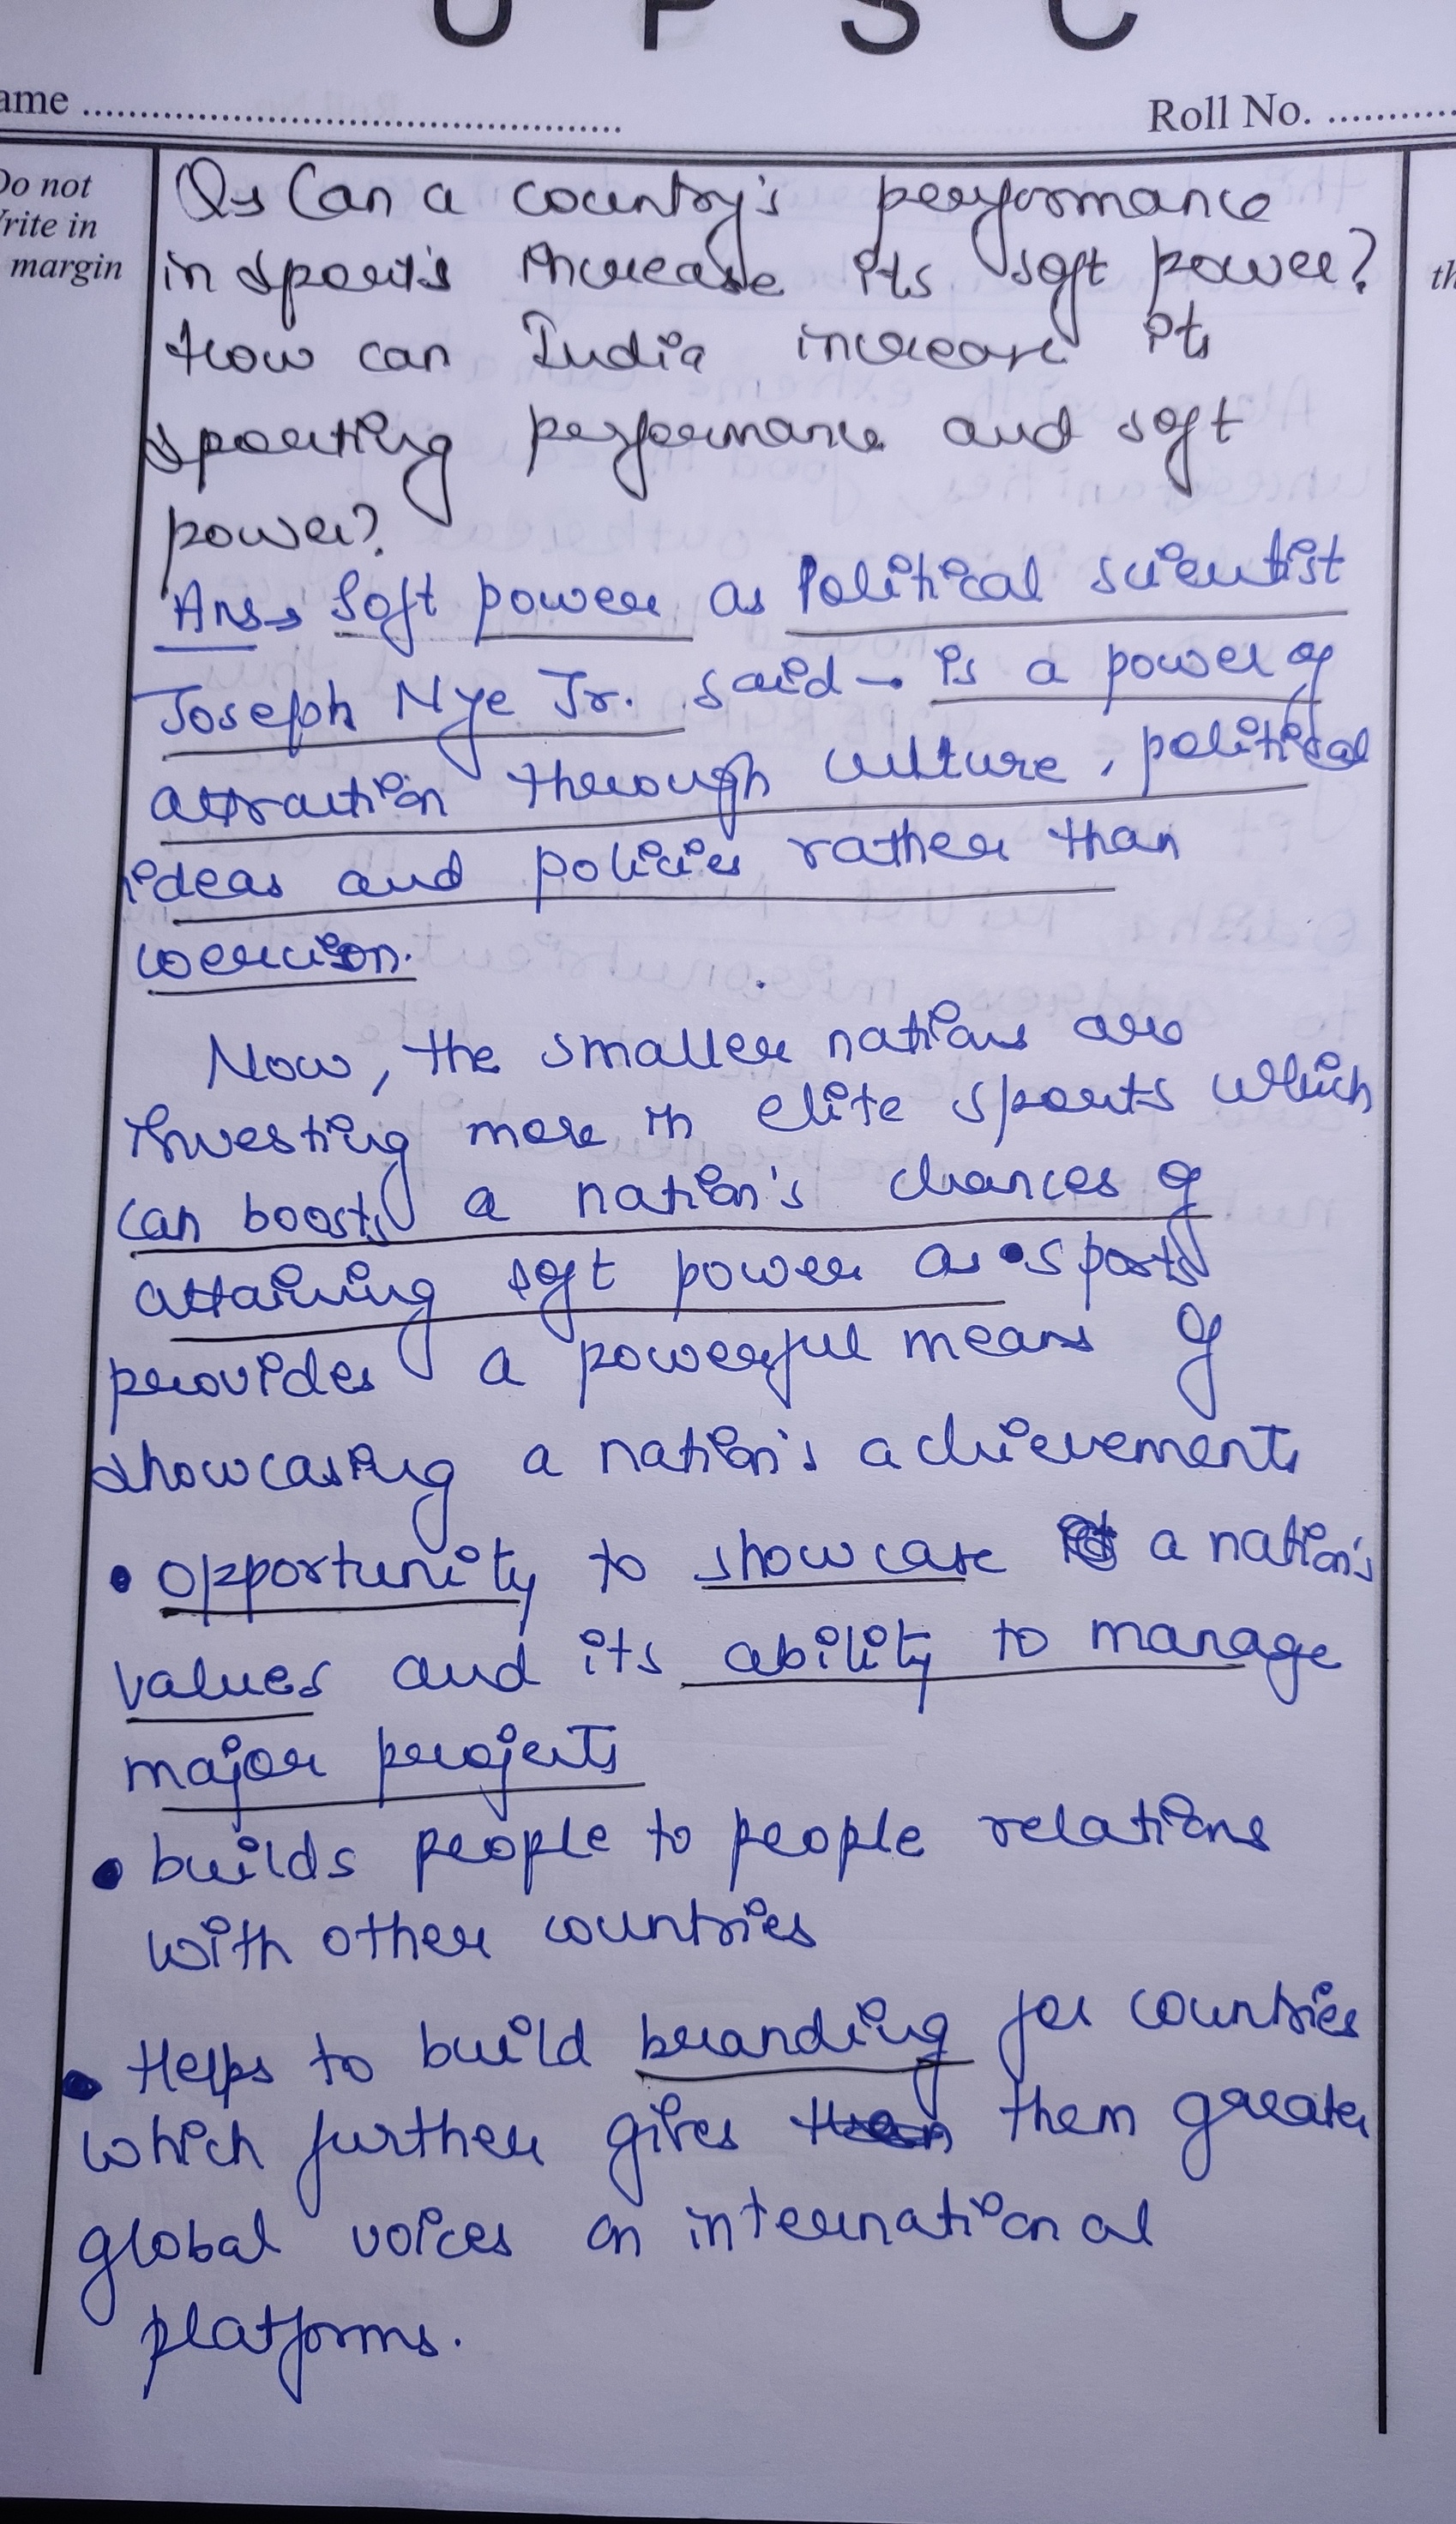 U P S C
ame ........................ Roll No. ............
Do not
rite in
margin
th
Qs Can a country's performance
in sports increase its soft power?
How can India increase its
sporting performance and soft
power?
Ans→ Soft power as Political scientist
Joseph Nye Jr. said → is a power of
attraction through culture, political
ideas and policies rather than
coercion.
Now, the smaller nations are
investing more in elite sports which
can boosts a nation's chances of
attaining soft power as sports
provides a powerful means of
showcasing a nation's achievements
• opportunity to showcase a nation's
values and its ability to manage
major projects
• builds people to people relations
with other countries
• Helps to build branding for countries
which further gives them greater
global voices on international
platforms.